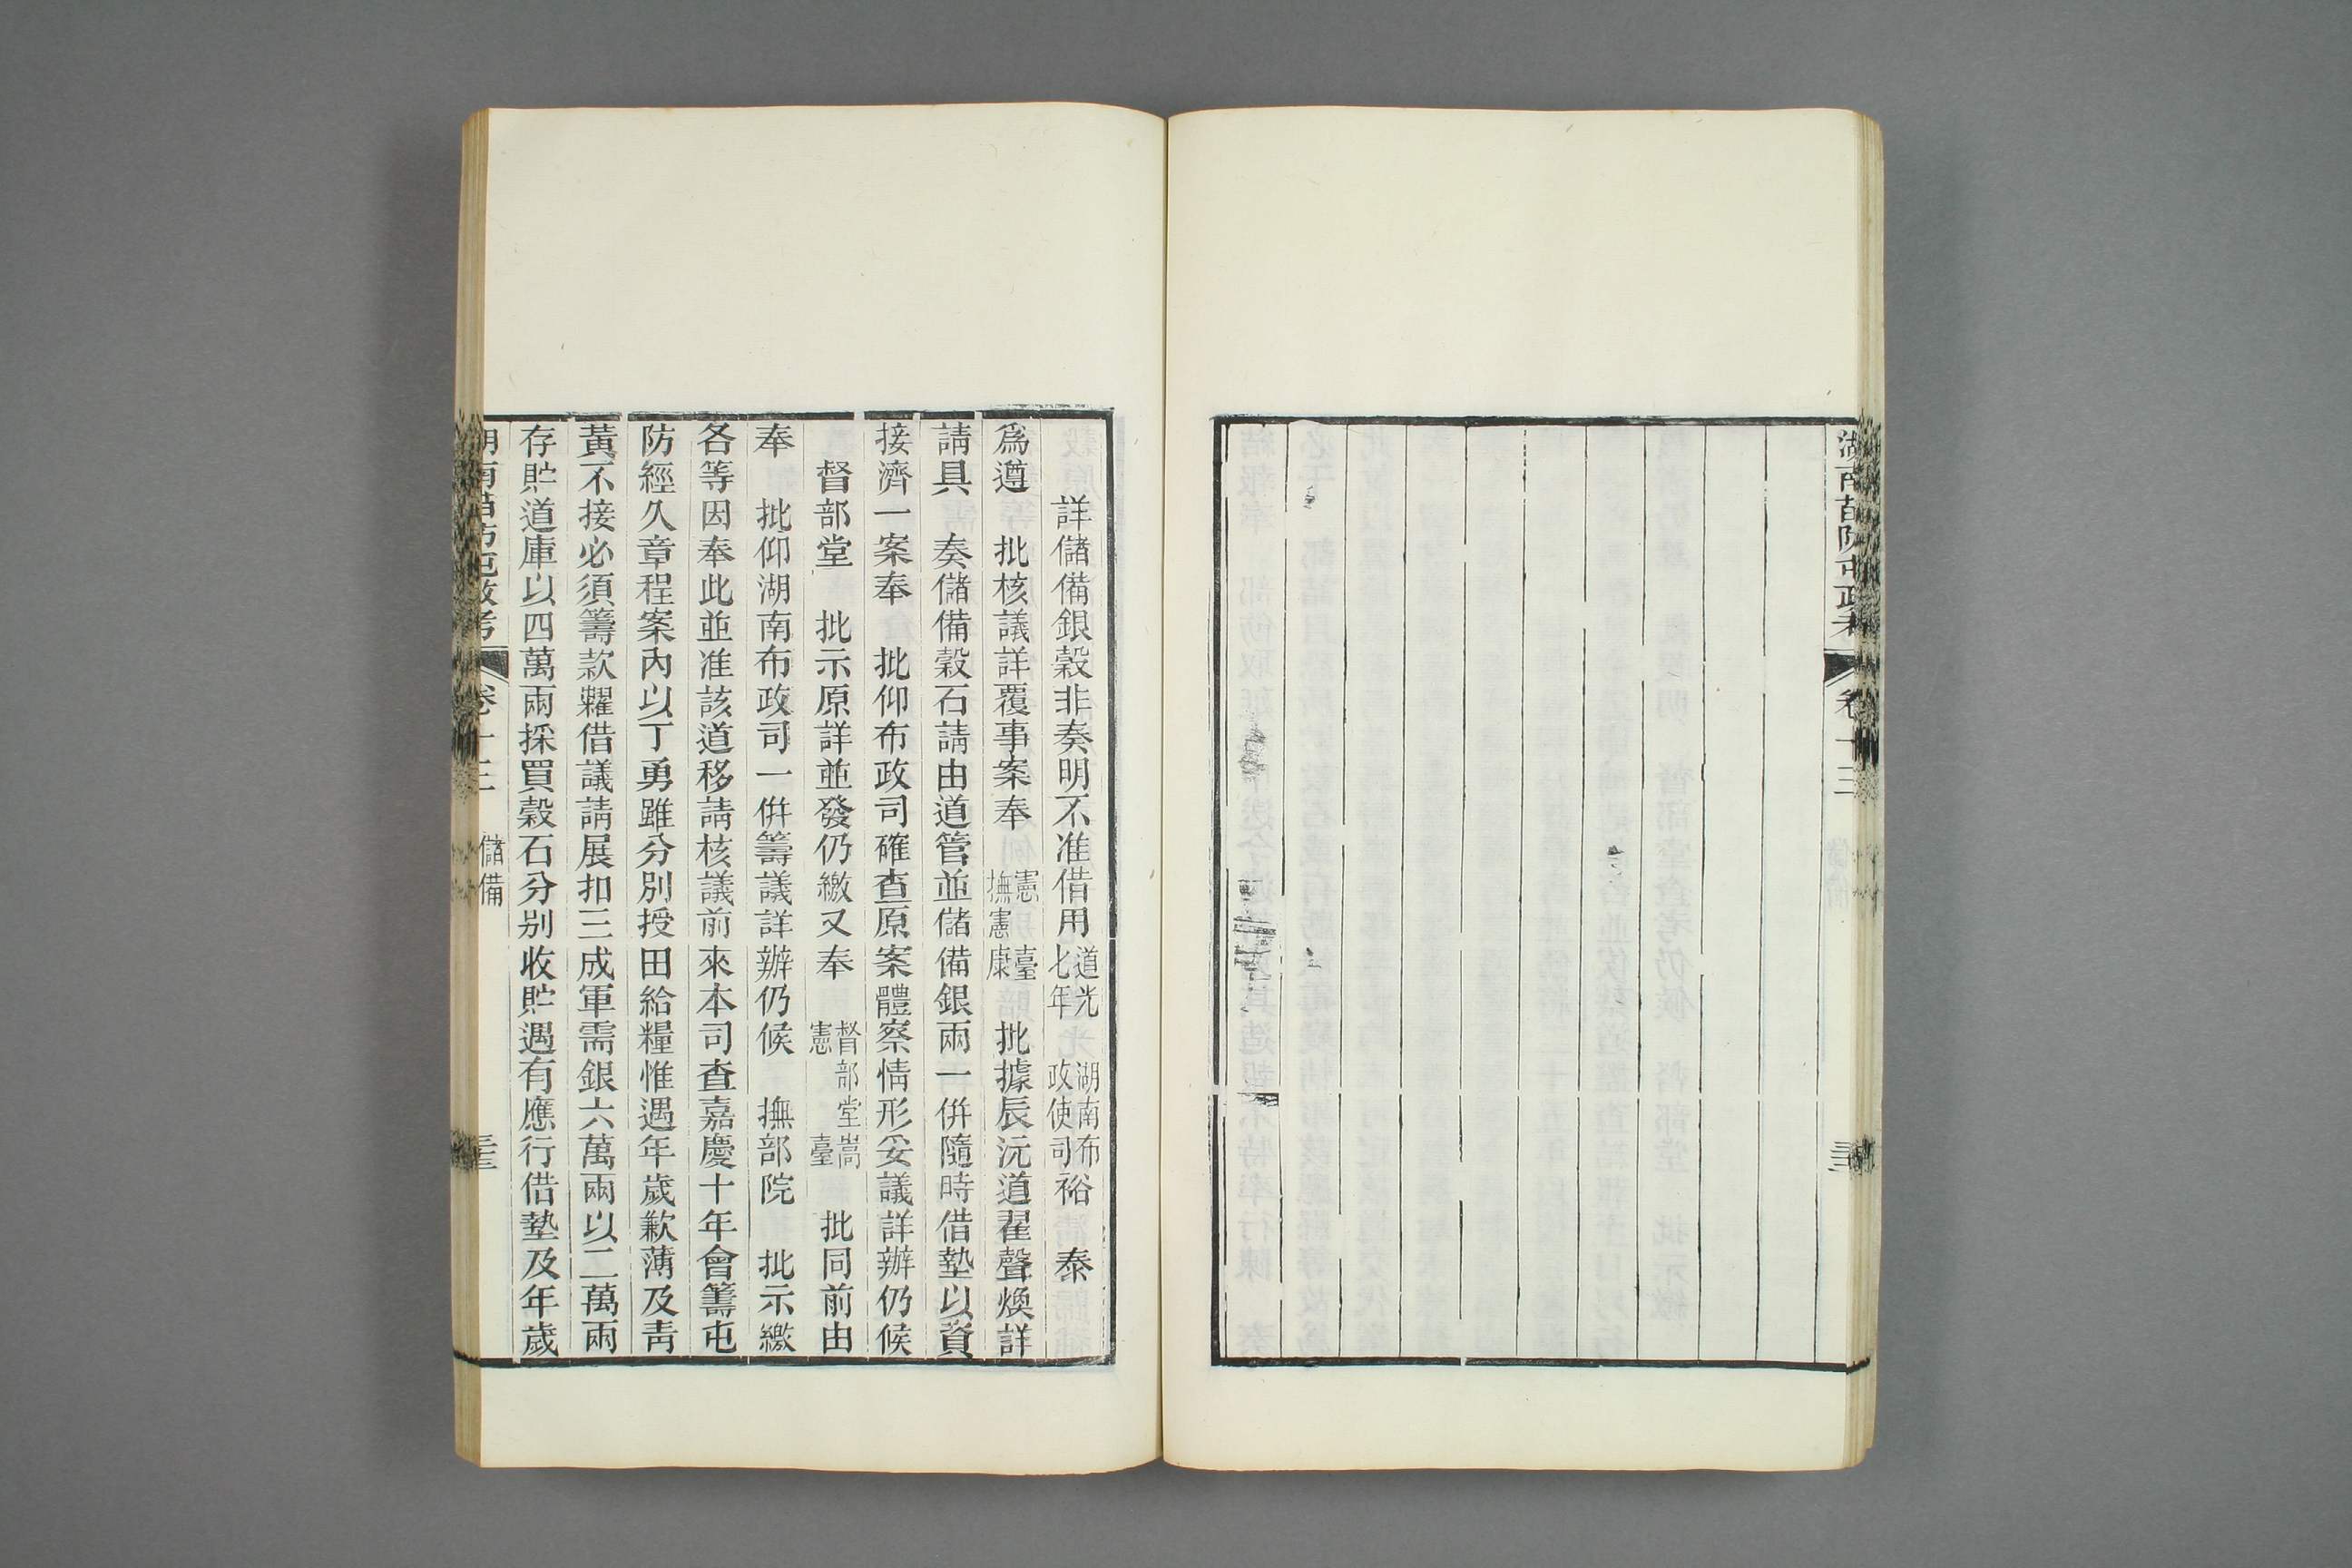 湖南苗防屯政考　卷十三
詳儲備銀穀非奏明不准借用　道光七年　湖南布政使司　裕　泰
爲遵　批核議詳覆事案奉　憲臺撫憲康　批據辰沅道翟聲煥詳
請具　奏儲備穀石請由道管並儲備銀兩一併隨時借墊以資
接濟一案奉　批仰布政司確查原案體察情形妥議詳辦仍候
督部堂　批示原詳並發仍繳又奉　督部堂嵩憲臺　批同前由
奉　批仰湖南布政司一併籌議詳辦仍候　撫部院　批示繳
各等因奉此並准該道移請核議前來本司查嘉慶十年會籌屯
防經久章程案內以丁勇雖分別授田給糧惟遇年歲歉薄及靑
黃不接必須籌款糶借議請展扣三成軍需銀六萬兩以二萬兩
存貯道庫以四萬兩採買穀石分别收貯遇有應行借墊及年歲
湖南苗防屯政考　卷十三　儲備